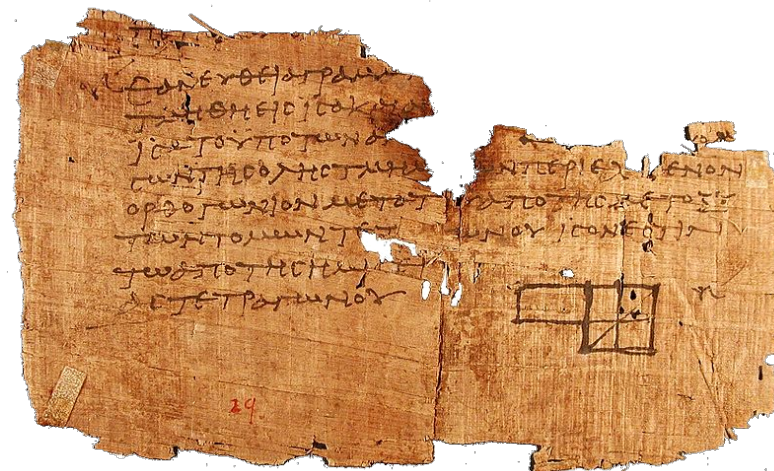 ΕΑΝ ΕΥΘΕΙΑ ΓΡΑΜ
ΤΜΗΘΗ ΕΙϹ ΙϹΑ ΚΑΙ Α
ΙϹΑ ΤΟ ΥΠΟ ΤΩΝ Α
ϹΩΝ ΤΗϹ ΟΛΗϹ ΤΜΗΜ ΩΝ ΠΕΡΙΕΧ ΕΝΟΝ
ΟΡΘΟΓΩΝΙΟΝ ΜΕΤΑ ΤΟΥ ΑΠΟ ΤΗϹ ΜΕΤΟΞΥ
ΤΩΝ ΤΟΜΩΝ ΤΕΤ ΩΝΟΥ ΙϹΟΝ ΕϹΤΙΝ
ΤΩ ΑΠΟ ΤΗϹ ΗΜΙ
ΑϹ ΤΕΤΡΑΓΩΝΟΥ
29